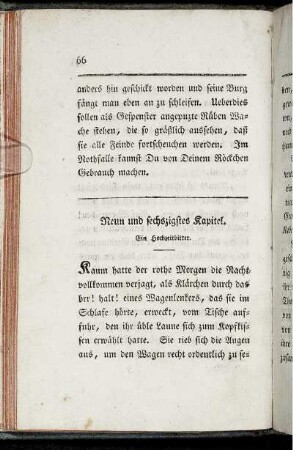 66
anders hin geschickt worden und seine Burg
fängt man eben an zu schleifen. Ueberdies
sollen als Gespenster angepuzte Rüben Wa-
che stehen, die so gräßlich aussehen, daß
sie alle Feinde fortscheuchen werden. Im
Nothfalle kannst Du von Deinem Röckchen
Gebrauch machen.
Neun und sechszigstes Kapitel.
Ein Hochzeitbitter.
Kaum hatte der rothe Morgen die Nacht
vollkommen verjagt, als Klärchen durch das
brr! halt! eines Wagenlenkers, das sie im
Schlafe hörte, erweckt, vom Tische auf-
fuhr, den ihr üble Laune sich zum Kopfkis-
sen erwählt hatte. Sie rieb sich die Augen
aus, um den Wagen recht ordentlich zu se-